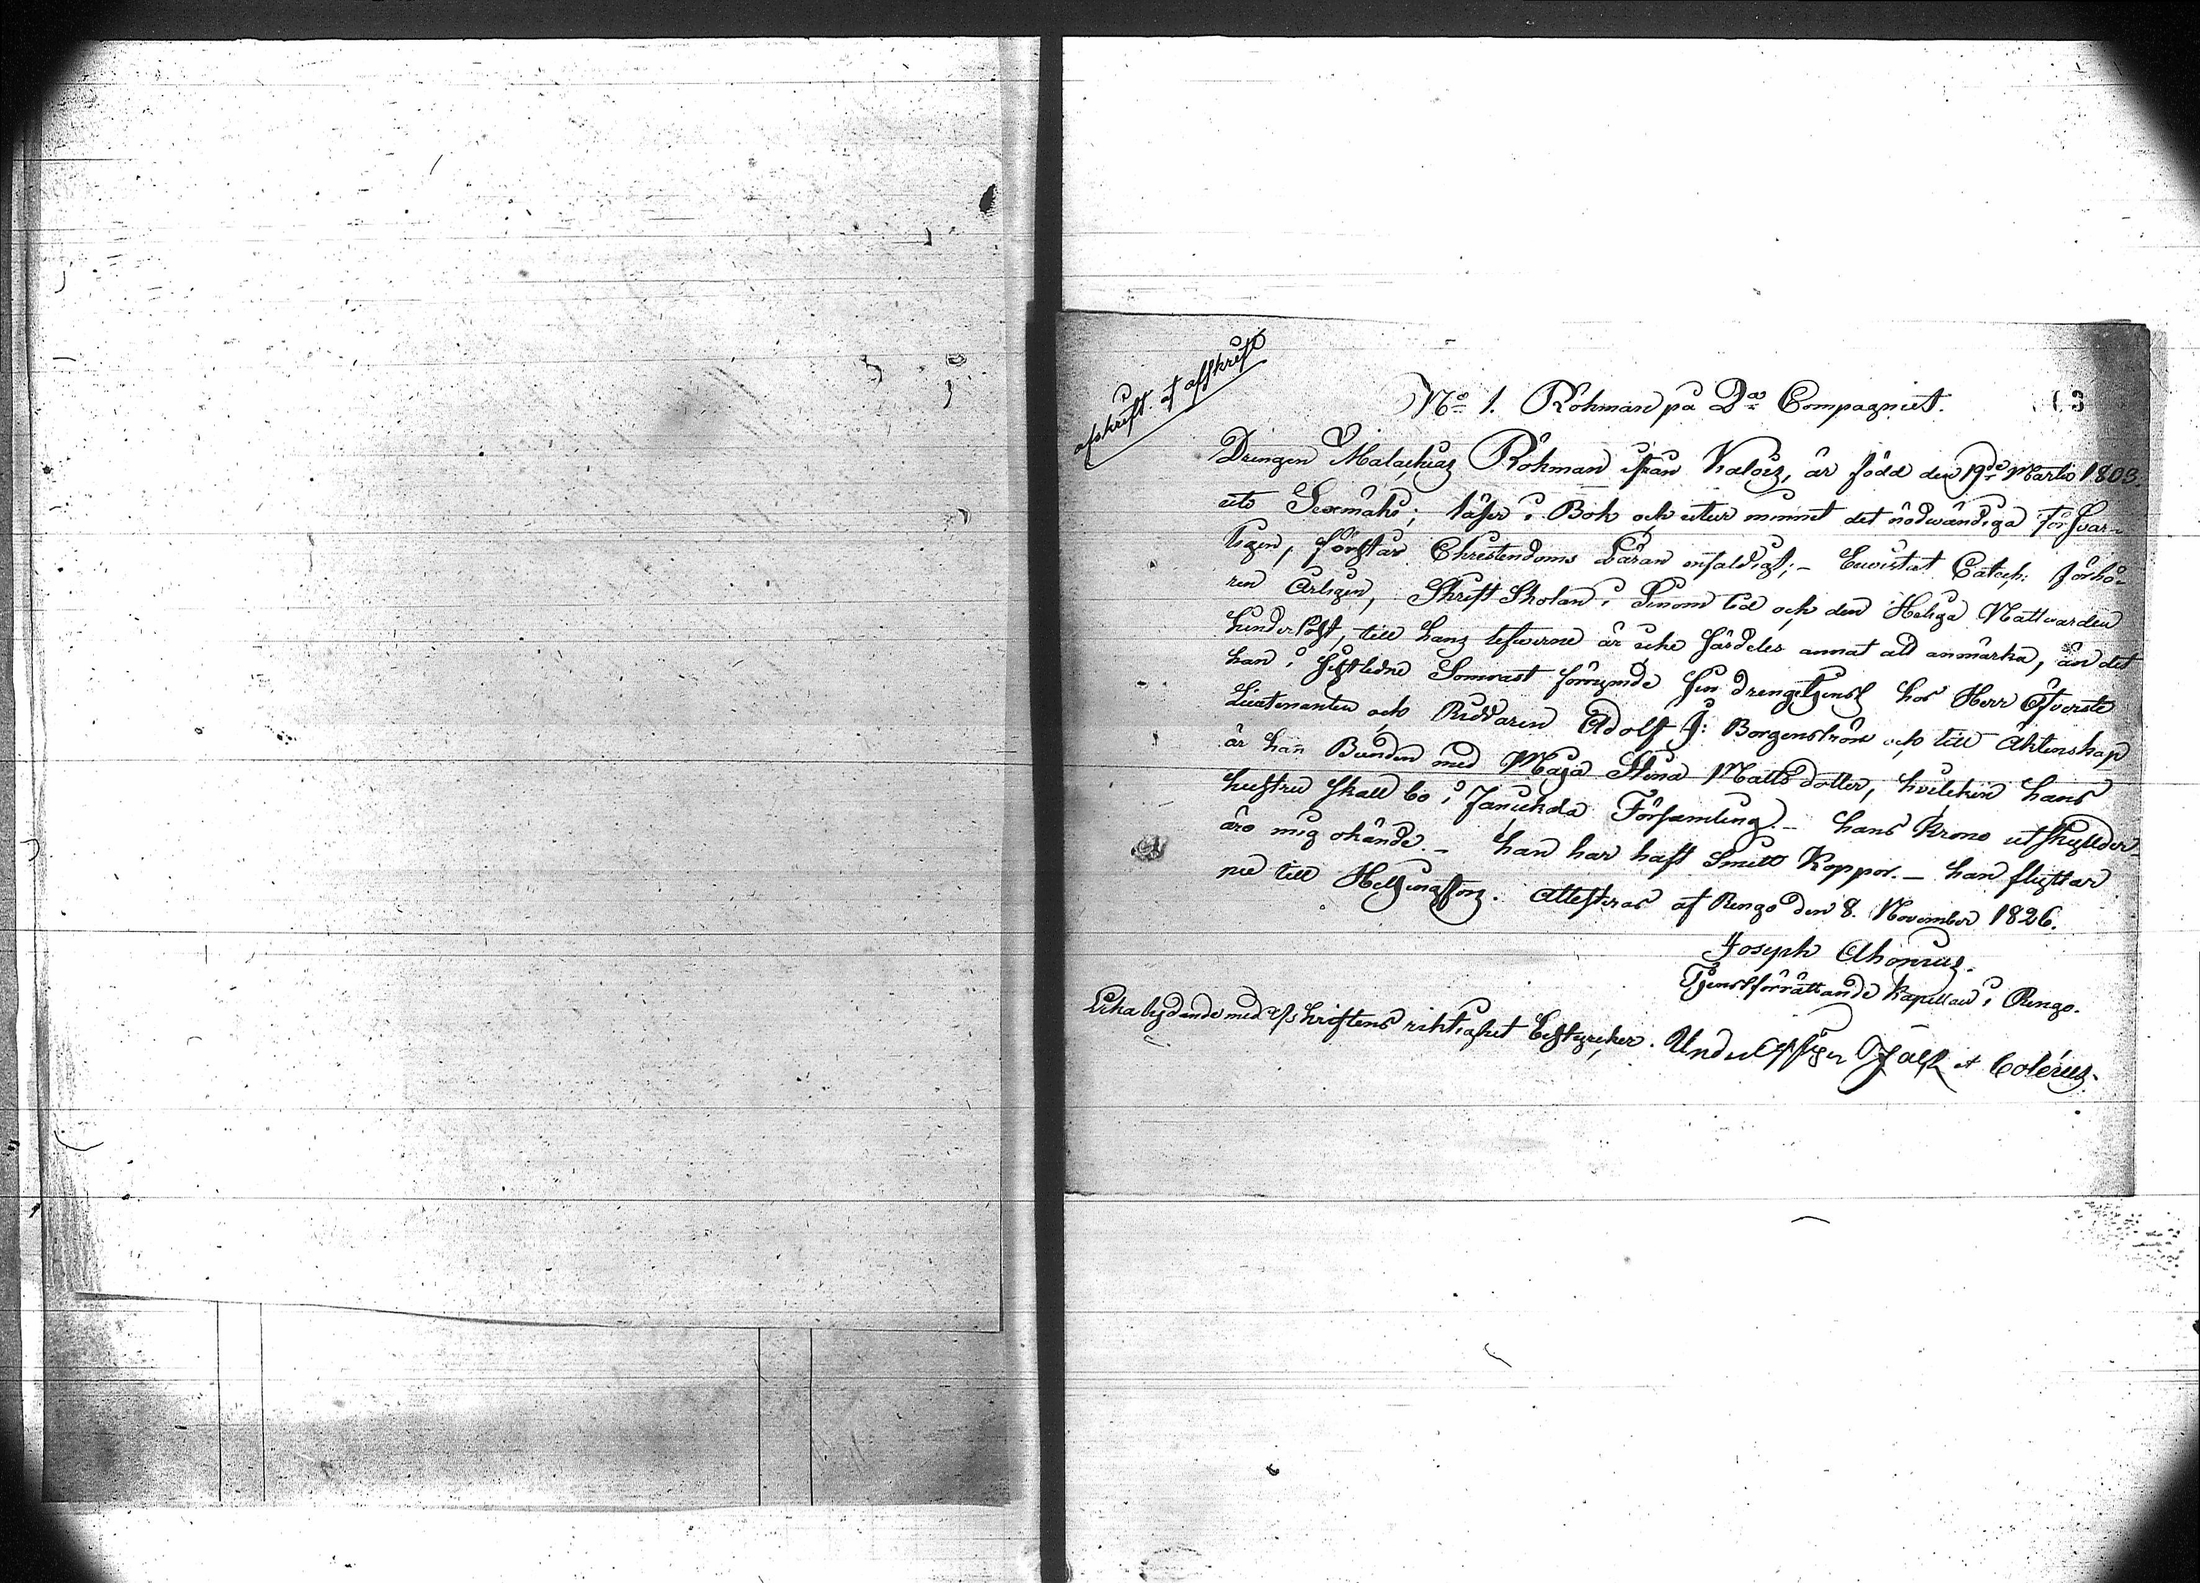 afskrift af afskrift
No 1. Röhman på 2a Compagniet.
63
Drengen Malachias Röhman ifrån Kalois, är född den 19de Martii 1803
uti Sexmäki; läser i Bok och utur minnet det nödwändiga försvar-
ligen, förstår Christendoms Läran enfaldigt; – Bewistat Catech: förhö-
ren Årligen, Skrift Skolan i Sinom tid och den Heliga Nattwarden
hinderlöst, till hans lefwerne är icke särdeles annat att anmärka, än det
han i sistledne Sommast förrymde sin drengetjenst hos Herr Öfverste
Lieutenanten och Riddaren Adolf J: Borgenström och till Äktenskap
är han Bunden med Maja Stina Mattsdotter, hvilken hans
hustru skall bo i Janickala Församling. – hans Krono utskyllder
äro mig okände. – han har haft Smitt Koppor. – han flyttar
nu till Helsingfors. Attesteras af Rengo den 8. November 1826.
Joseph Ahonius.
Tjenstförrättande Kapellan i Rengo.
Lika lydande med Afskriftens riktighet bestyrker. Underofficer Falk et Colérus